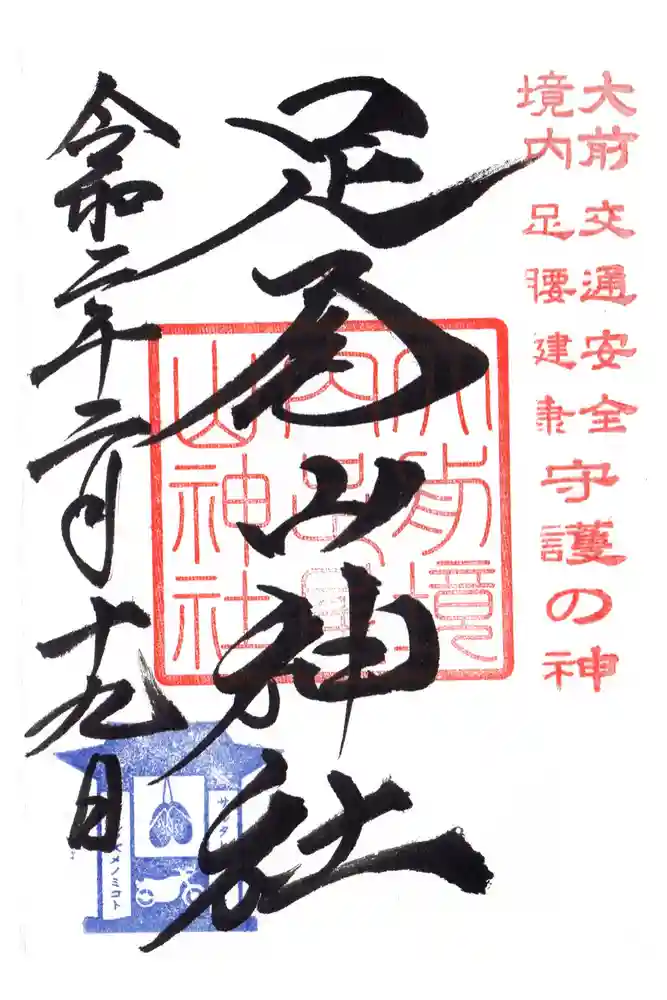 大前 交通安全
境内 足腰建康
守護の神
足尾山神社
令和二年二月十九日
大前境
内足尾
山神社
メノミコト